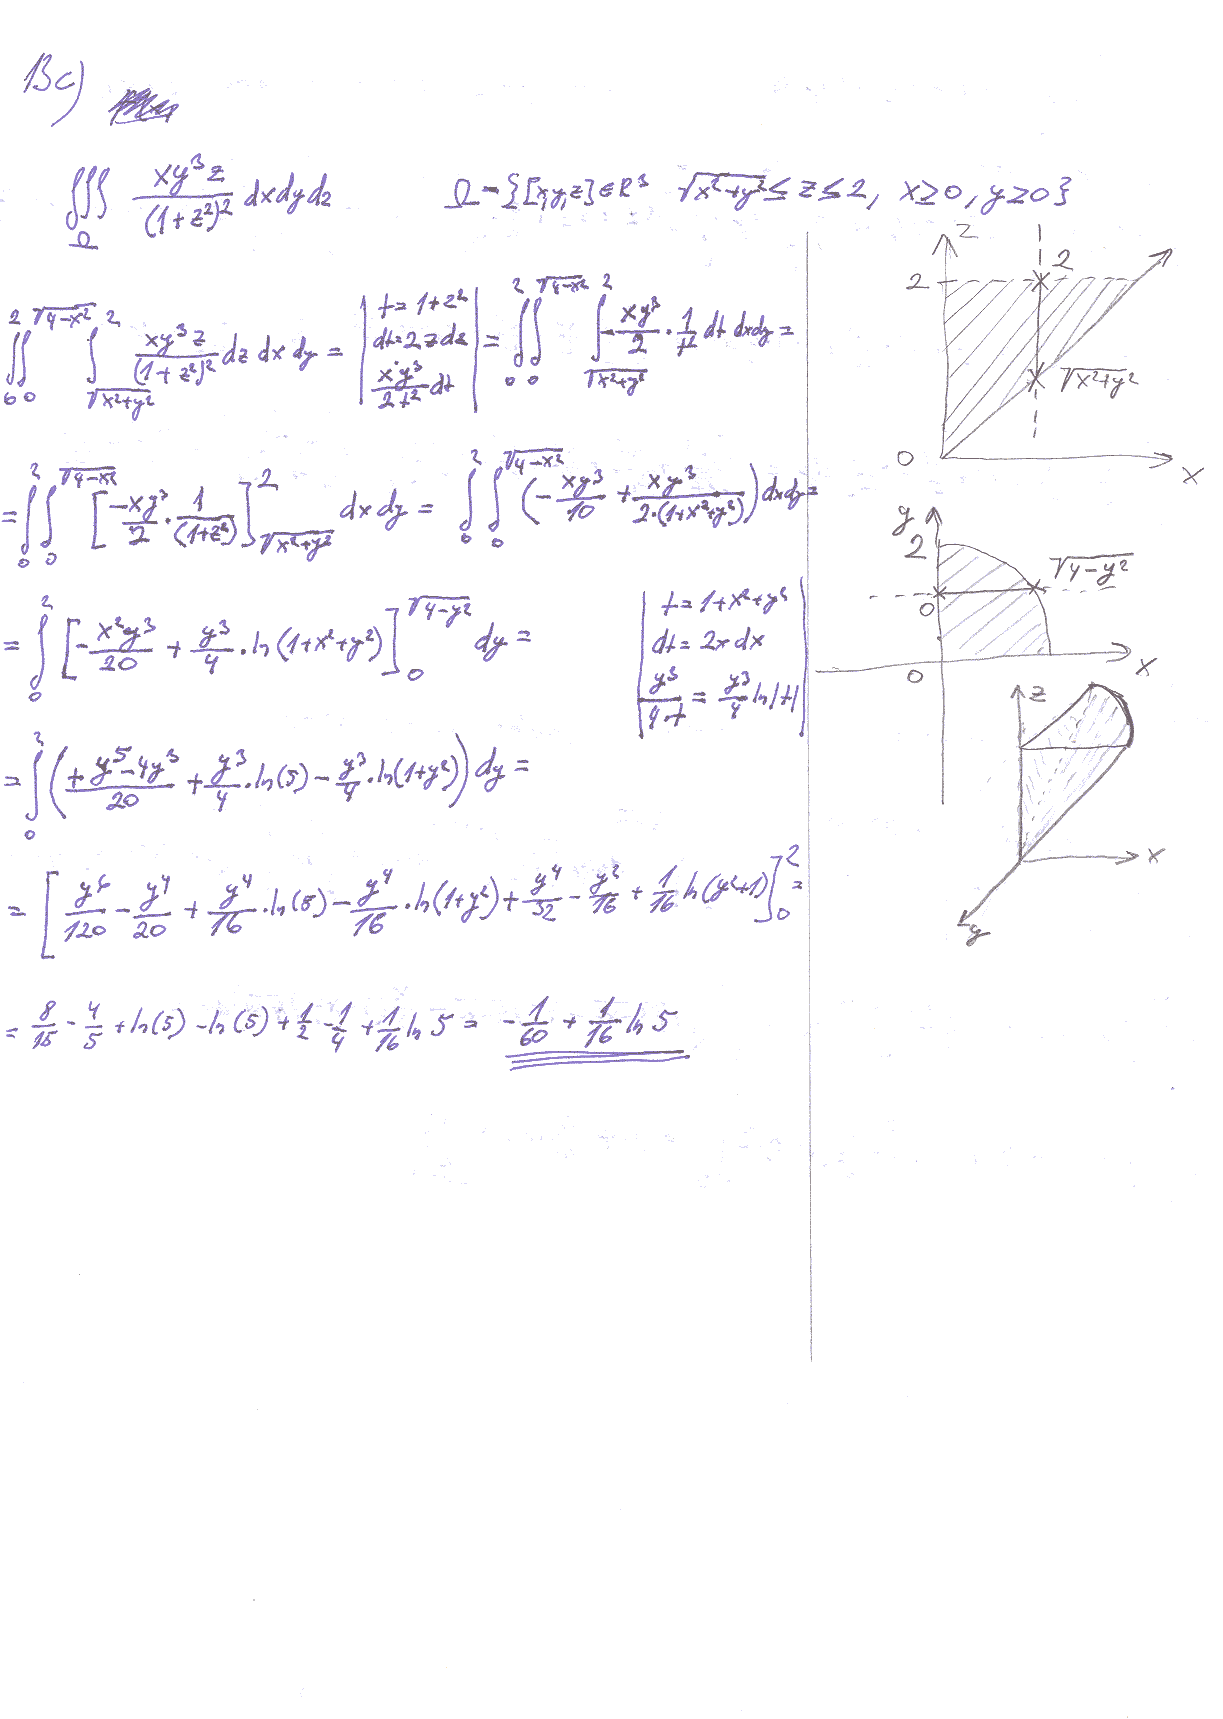 13c)
∭_Ω xy³z/(1+z²)² dxdydz    Ω = {[x,y,z]∈R³ √(x²+y²) ≤ z ≤ 2, x≥0, y≥0}
∫_0^2 ∫_0^√(4-x²) ∫_√(x²+y²)^2 xy³z/(1+z²)² dz dx dy = | t=1+z² ; dt=2zdz ; xy³/2t² dt | = ∫_0^2 ∫_0^√(4-x²) ∫_√(x²+y²)^2 xy³/2 · 1/t² dt dxdy =
= ∫_0^2 ∫_0^√(4-x²) [-xy³/2 · 1/(1+z²)]_√(x²+y²)^2 dx dy = ∫_0^2 ∫_0^√(4-x²) (-xy³/10 + xy³/2·(1+x²+y²)) dxdy =
= ∫_0^2 [-x²y³/20 + y³/4 · ln(1+x²+y²)]_0^√(4-y²) dy =    | t=1+x²+y² ; dt=2xdx ; y³/4t = y³/4 ln|t| |
= ∫_0^2 (+y⁵-4y³/20 + y³/4 · ln(5) - y³/4 · ln(1+y²)) dy =
= [y⁶/120 - y⁴/20 + y⁴/16 · ln(5) - y⁴/16 · ln(1+y²) + y⁴/32 - y²/16 + 1/16 ln(y²+1)]_0^2 =
= 8/15 - 4/5 + ln(5) - ln(5) + 1/2 - 1/4 + 1/16 ln 5 = -1/60 + 1/16 ln 5
z
2
2
√(x²+y²)
0
x
y
2
√(4-y²)
0
0
x
z
x
y